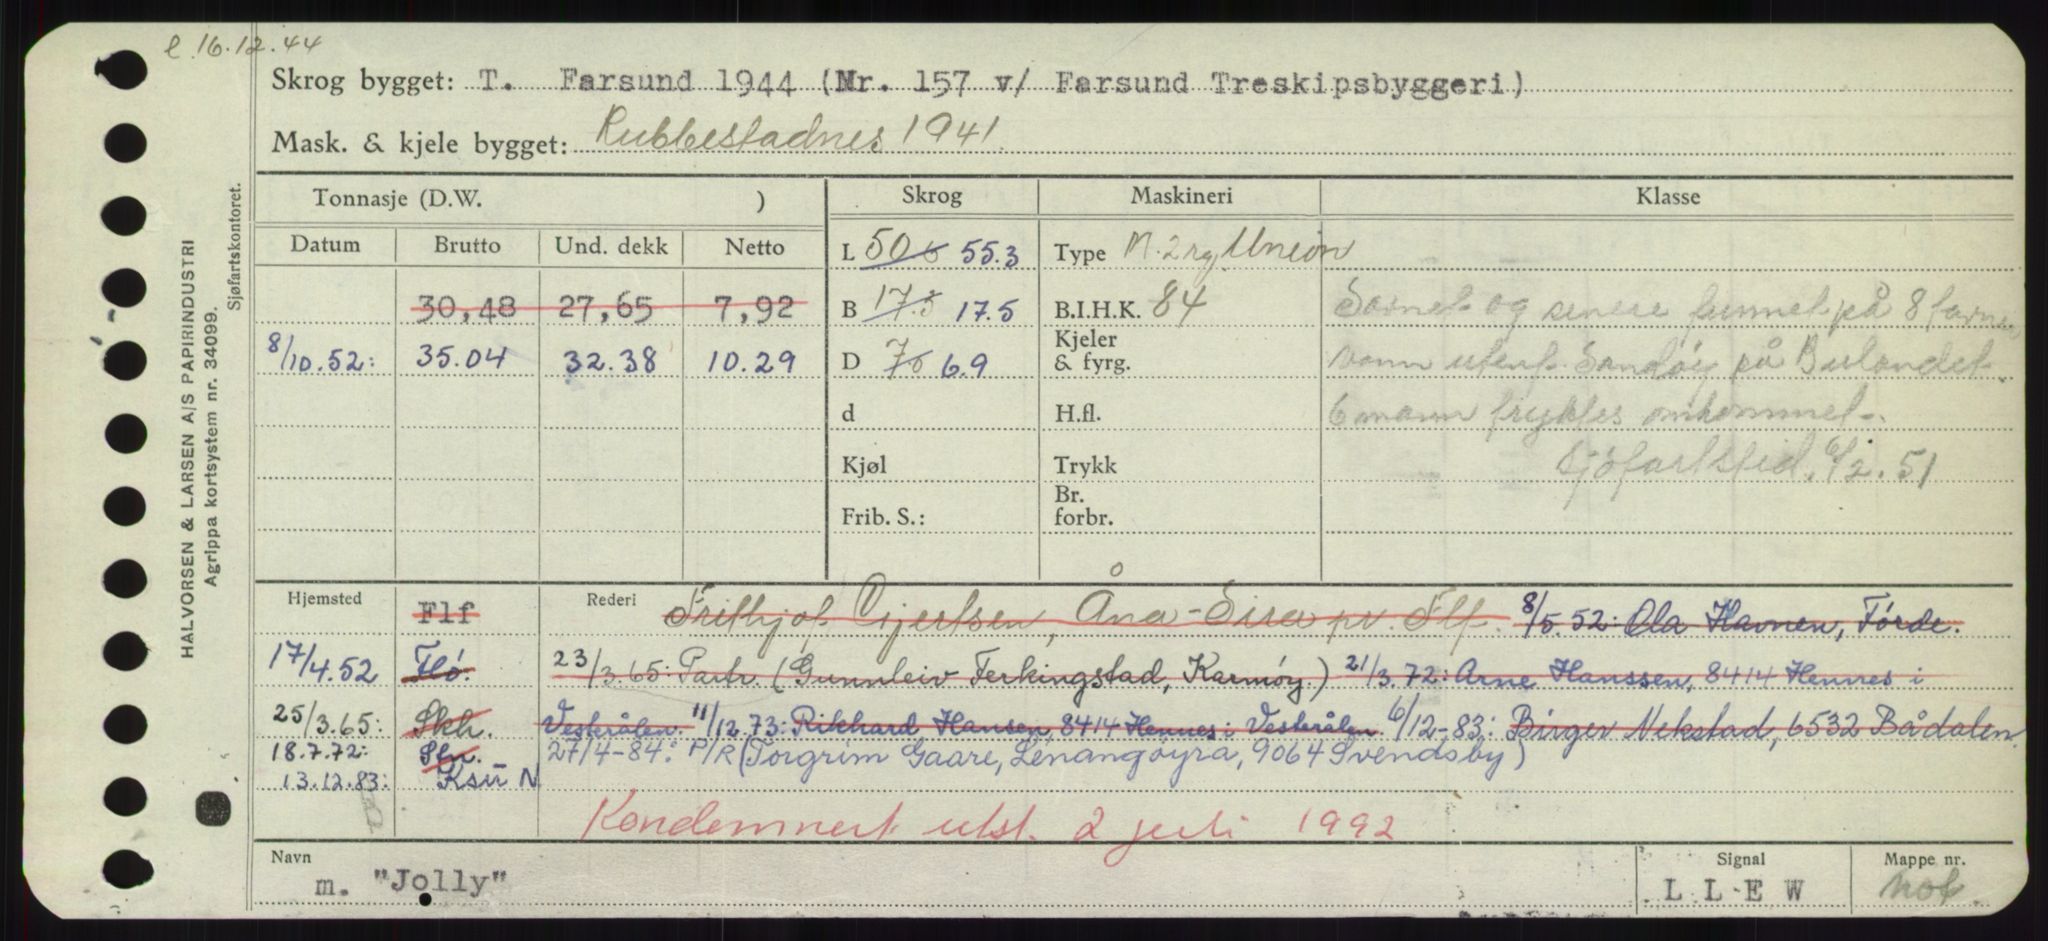 e. 16.12.44
Skrog bygget: T. Farsund 1944 (Nr. 157 v/ Farsund Treskipsbyggeri)
Mask. & kjele bygget: Rubbestadnes 1941.
HALVORSEN & LARSEN A/S PAPIRINDUSTRI
Agrippa kortsystem nr. 34099.
Sjøfartskontoret.
Tonnasje (D.W. ) Skrog Maskineri Klasse
Datum Brutto Und. dekk Netto L 50.6 55.3 Type M. 2 rg Union
30,48 27,65 7,92 B 17.5 17.5 B.I.H.K. 84 Savnet og senere funnet på 8 favner
8/10.52: 35.04 32.38 10.29 D 7.6 6.9 Kjeler & fyrg. vann utenf. Sandøy på Bulandet.
d H.fl. 6 mann fryktes omkommet.
Kjøl Trykk Sjøfartstid. 6/2.51
Frib. S.: Br. forbr.
Hjemsted Flf Rederi Frithjof Gjertsen, Åna-Sira pr. Flf. 8/5.52: Ola Havnen, Førde.
17/4.52 Flø. 23/3.65: Partr. (Gunnleiv Ferkingstad, Karmøy.) 21/3.72: Arne Hanssen, 8414 Hennes i
25/3.65: Skh. Vesterålen. 11/12.73: Rikhard Hansen, 8414 Hennes i Vesterålen. 6/12-83: Birger Nekstad, 6532 Bådalen.
18.7.72: Sln. 27/4-84: P/R (Torgrim Gaare, Lenangsøyra, 9064 Svendsby)
13.12.83: Ksu N
Kondemnert utst. 2 juli 1992
Navn m. "Jolly" Signal L L E W Mappe nr. not.